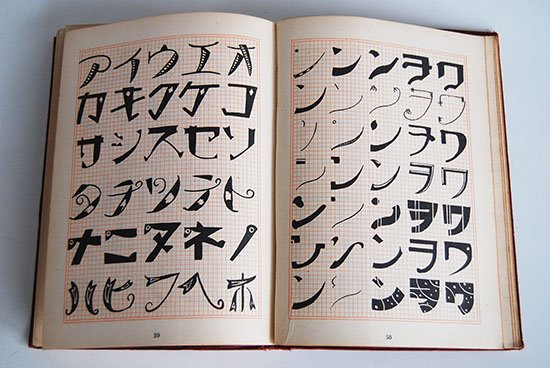 アイウエオ
カキクケコ
サシスセソ
タチツテト
ナニヌネノ
ハヒフヘホ
59
ンンンヲワ
ンンンヲワ
ンンンヲワ
ンンンヲワ
ンンンヲワ
ンンンヲワ
ンンンヲワ
58